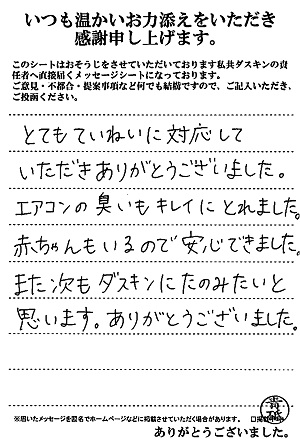 いつも温かいお力添えをいただき
感謝申し上げます。
このシートはおそうじをさせていただいております私共ダスキンの責
任者へ直接届くメッセージシートになっております。
ご意見・不都合・提案事項など何でも結構ですので、ご記入いただき、
ご投函ください。
とてもていねいに対応して
いただきありがとうございました。
エアコンの臭いもキレイにとれました。
赤ちゃんもいるので安心できました。
また次もダスキンにたのみたいと
思います。ありがとうございました。
※届いたメッセージを匿名でホームページなどに掲載させていただく場合があります。
ありがとうございました。